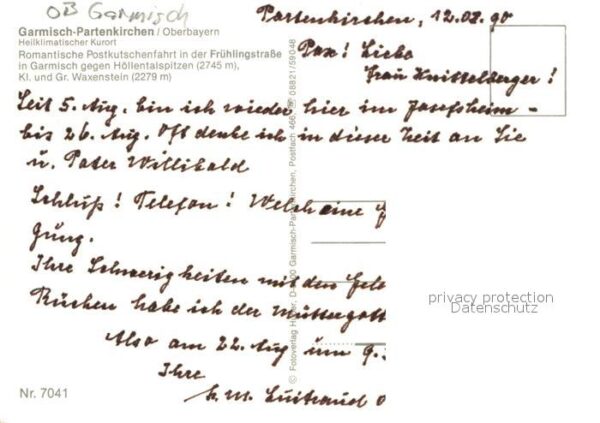 OB Garmisch
Garmisch-Partenkirchen / Oberbayern
Heilklimatischer Kurort
Romantische Postkutschenfahrt in der Frühlingstraße
in Garmisch gegen Höllentalspitzen (2745 m),
Kl. und Gr. Waxenstein (2279 m)
Partenkirchen, 12.08.90
Pax! Liebe
Frau Knittelberger!
Seit 5. Aug. bin ich wieder hier im Josefsheim -
bis 26. Aug. Oft denke ich in dieser Zeit an Sie
u. Pater Willibald
Schluß! Telefon! Welch eine
gung.
Ihre Schwierigkeiten mit den
Rücken habe ich der Muttergott
Also am 22. Aug um 9.
Ihre
Sr. M. Luitraud
© Fotoverlag Huber, D-8100 Garmisch-Partenkirchen, Postfach 466, ☎ 08821/59048
Nr. 7041
privacy protection
Datenschutz